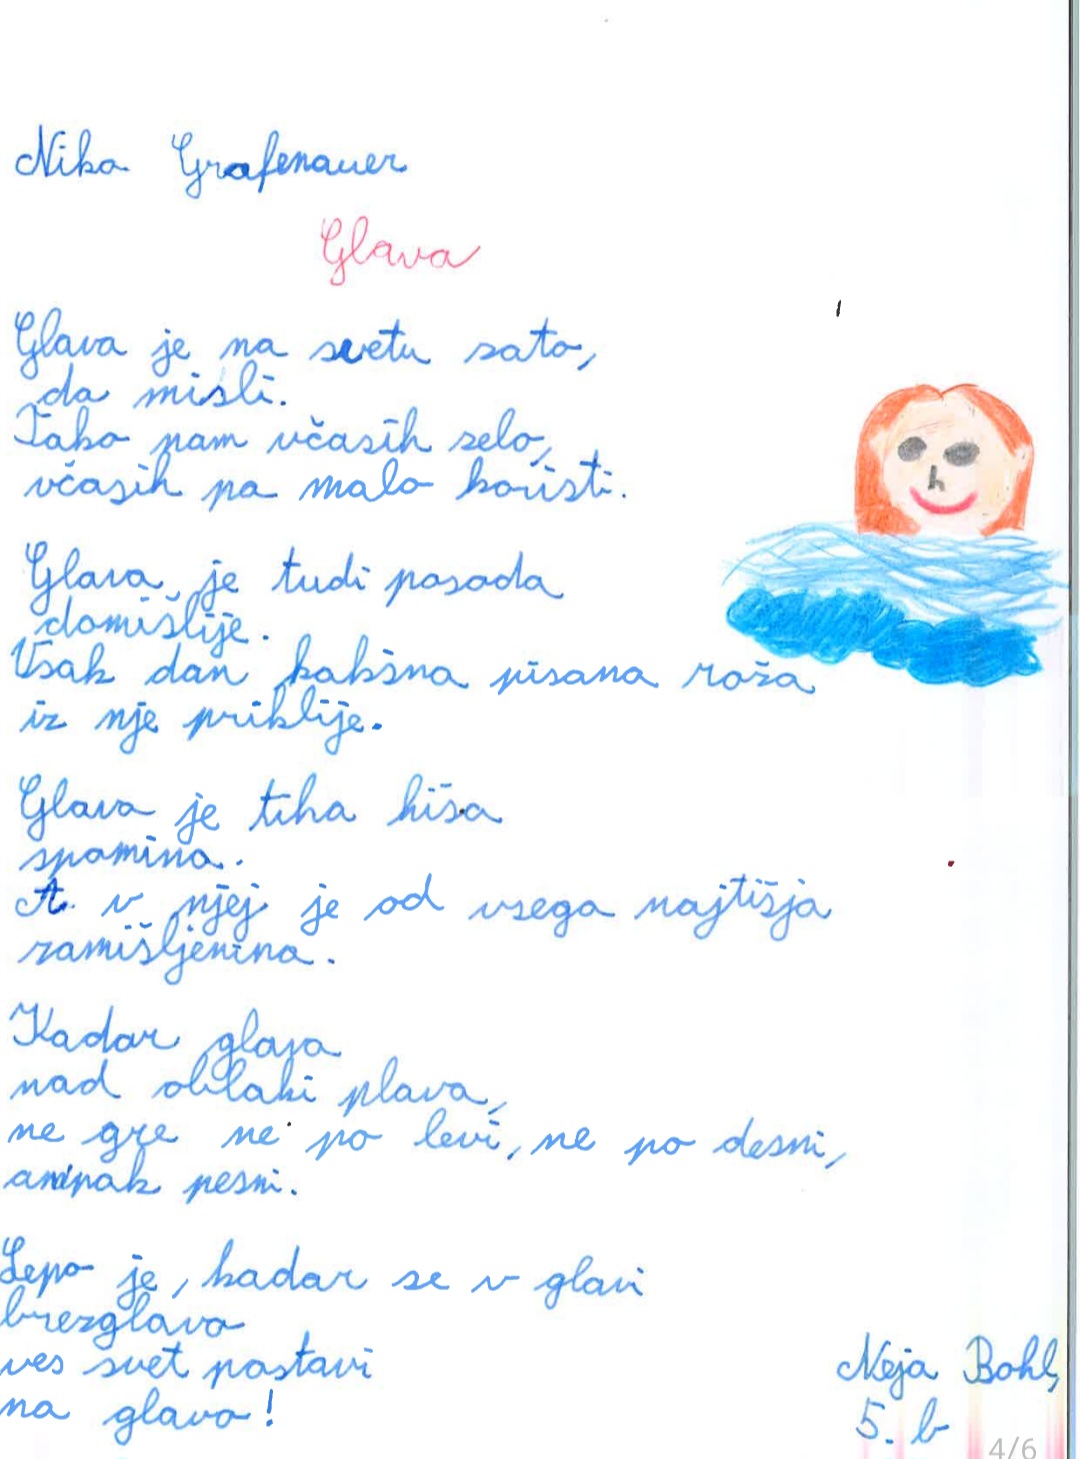 Niko Grafenauer
Glava
Glava je na svetu zato,
da misli.
Tako nam včasih zelo,
včasih pa malo koristi.
Glava je tudi posoda
domišlije.
Vsak dan kakšna pisana roža
iz nje priklije.
Glava je tiha hiša
spomina.
A v njej je od vsega najtišja
zamišljenina.
Kadar glava
nad oblaki plava,
ne gre ne po levi, ne po desni,
ampak pesni.
Lepo je, kadar se v glavi
brezglavo
ves svet postavi
na glavo!
Neja Bohl,
5. b
4/6